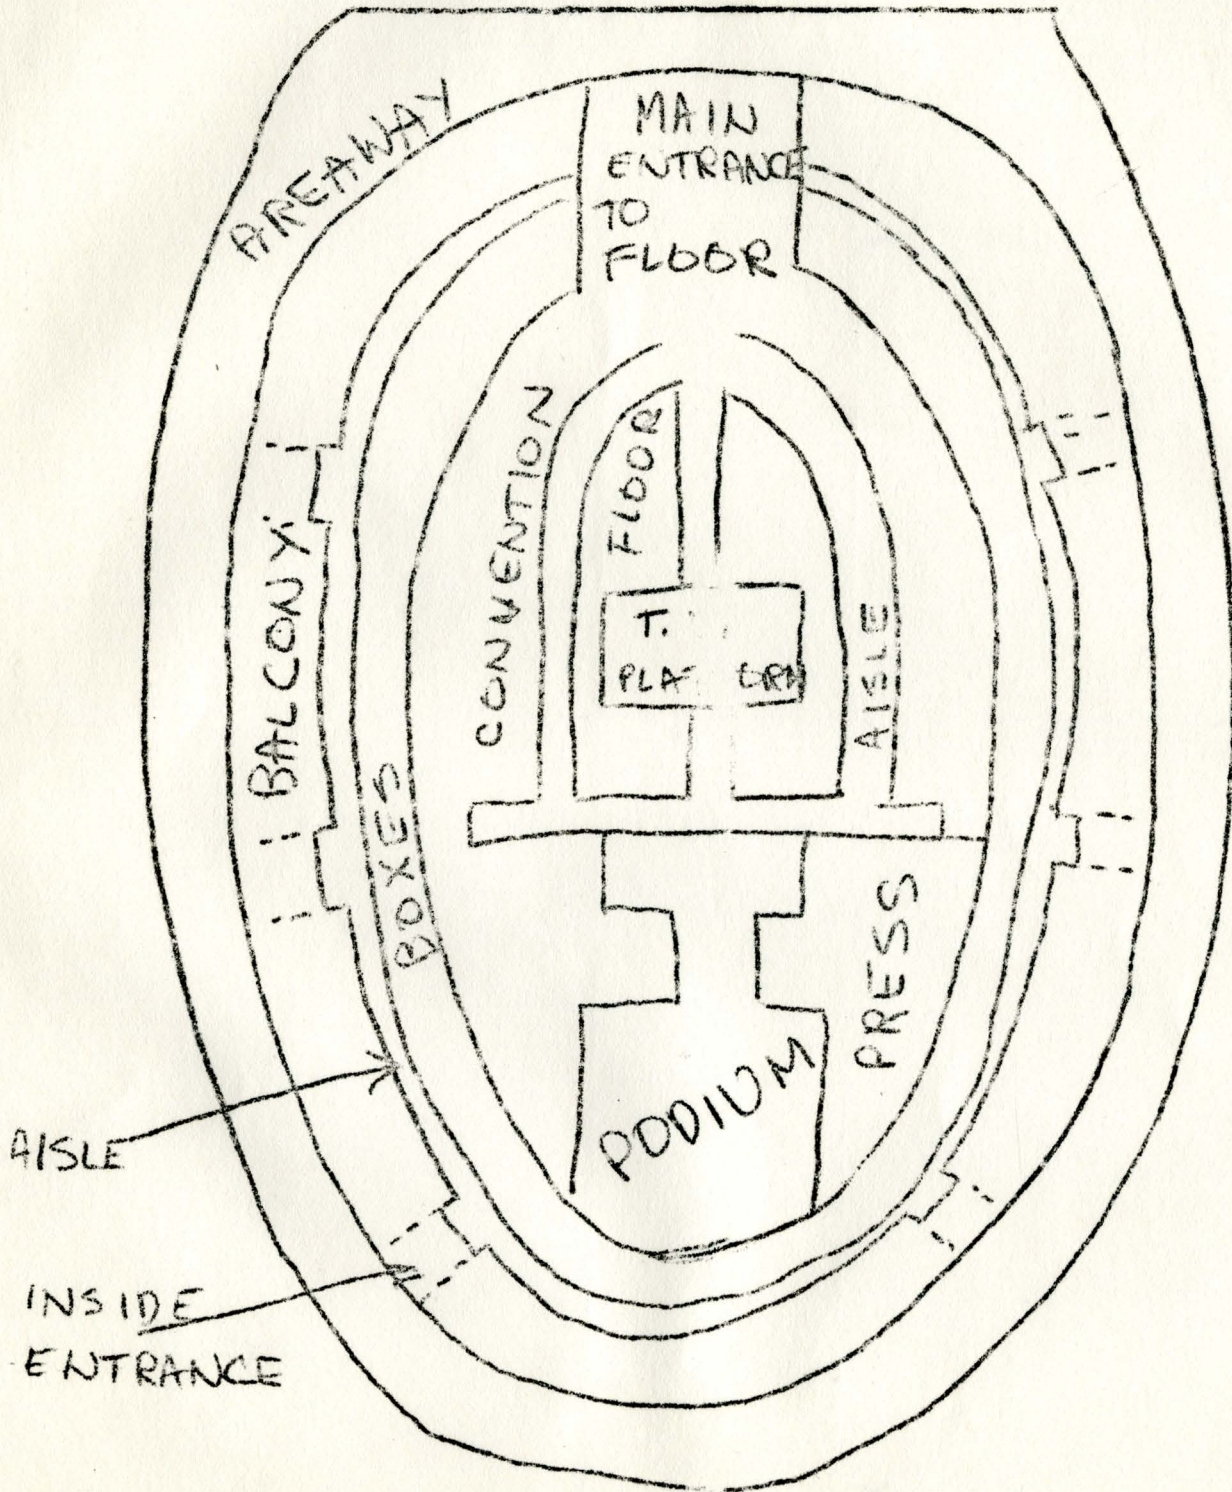 AREAWAY
MAIN
ENTRANCE
TO
FLOOR
CONVENTION
FLOOR
BALCONY
T.
AISLE
BOXES
PRESS
PODIUM
AISLE
INSIDE
ENTRANCE